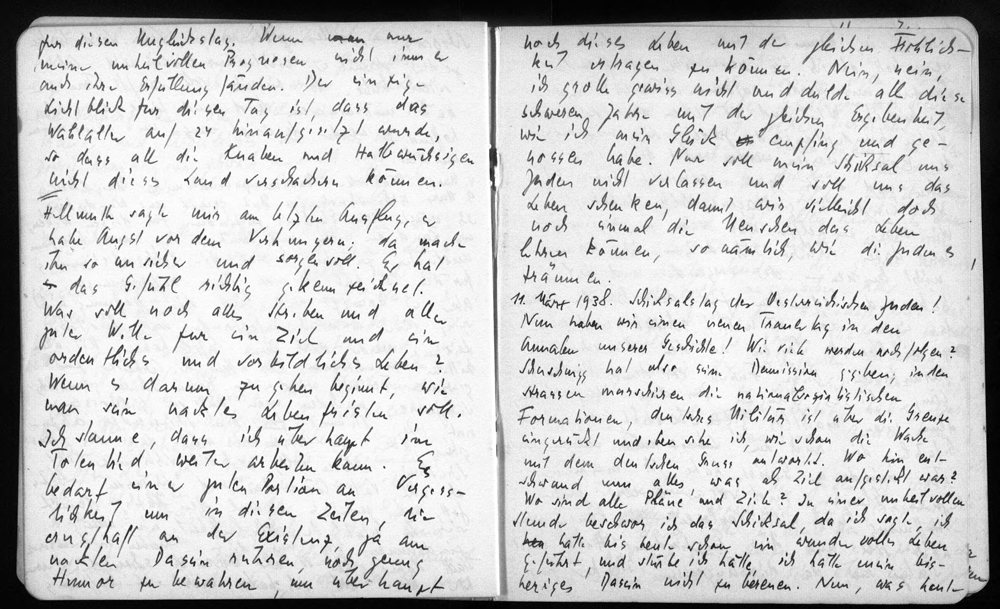 für diesen Unglückstag. Wenn nur
meine unheilvollen Prognosen nicht immer
auch ihre Erfüllung fänden. Der einzige
Lichtblick für diesen Tag ist, dass das
Wahlalter auf 24 hinaufgesetzt wurde,
so dass all die Knaben und Halbwüchsigen
nicht dieses Land verschachern können.
Hellmuth sagte mir am letzten Ausflug, er
habe Angst vor dem Verhungern; da mache
ihn so unsicher und sorgenvoll. Er hat
das Gefühl richtig gekennzeichnet.
Was soll noch alles Streben und aller
guter Wille für ein Ziel und ein
ordentliches und vorbildliches Leben?
Wenn es darum zu gehen beginnt, wie
man sein nacktes Leben fristen soll.
Ich staune, dass ich überhaupt im
Totenlied weiter arbeiten kann. Es
bedarf einer guten Portion an Vergess-
lichkeit um in diesen Zeiten, die
ernsthaft an der Existenz, ja am
nackten Dasein rühren, noch genug
Humor zu bewahren, um überhaupt
noch dieses Leben mit der gleichen Fröhlich-
keit ertragen zu können. Nein, nein,
ich grolle gewiss nicht und dulde all diese
schweren Jahre mit der gleichen Ergebenheit,
wie ich mein Glück empfing und ge-
nossen habe. Nur soll mein Schicksal uns
Juden nicht verlassen und soll uns das
Leben schenken, damit wir vielleicht doch
noch einmal die Menschen das Leben
lehren können, so nämlich, wie die Juden es
träumen.
11. März 1938. Schicksalstag der Oesterreichischen Juden!
Nun haben wir einen neuen Trauertag in den
Annalen unserer Geschichte! Wie viele werden noch folgen?
Schuschnigg hat also seine Demission gegeben, in den
Strassen marschieren die nationalsozialistischen
Formationen, deutsches Militär ist über die Grenze
eingerückt und eben sehe ich, wie schon die Wache
mit dem deutschen Gruss antwortet. Wo hin ent-
schwand nun alles, was als Ziel aufgestellt war?
Wo sind alle Pläne und Ziele? In einer unheilvollen
Stunde beschwor ich das Schicksal, da ich sagte, ich
hätte bis heute schon ein wundervolles Leben
geführt, und stürbe ich hätte, ich hätte mein bis-
heriges Dasein nicht zu bereuen. Nun, was heute